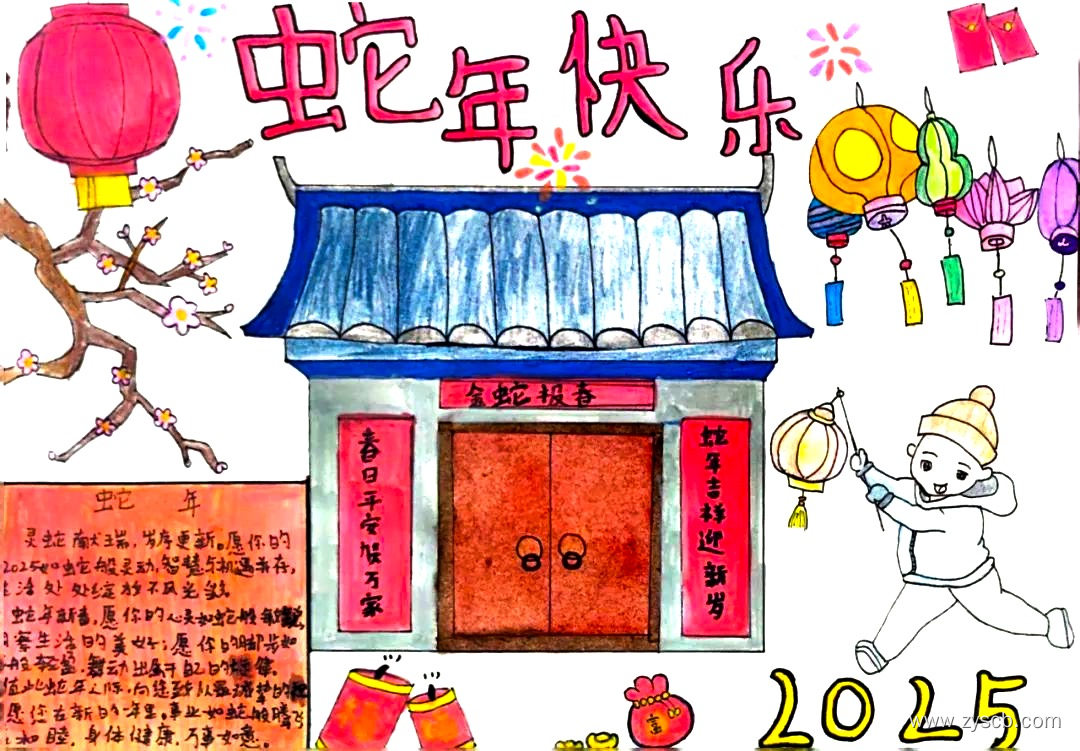 蛇年快乐
金蛇报春
春日平安 万家
蛇年吉祥迎新岁
蛇 年
灵蛇献瑞,岁序更新。愿你的
2025如蛇般灵动,智慧与机遇并存,
生活处处绽放不凡光彩。
蛇年新春,愿你的心灵如蛇般
察生活的美好;愿你的脚步如
般轻盈,舞动出属于自己的
值此蛇年之际,向
愿您在新的一年里,事业如蛇般腾飞
和睦,身体健康,万事如意。
2025
www.zyscb.com